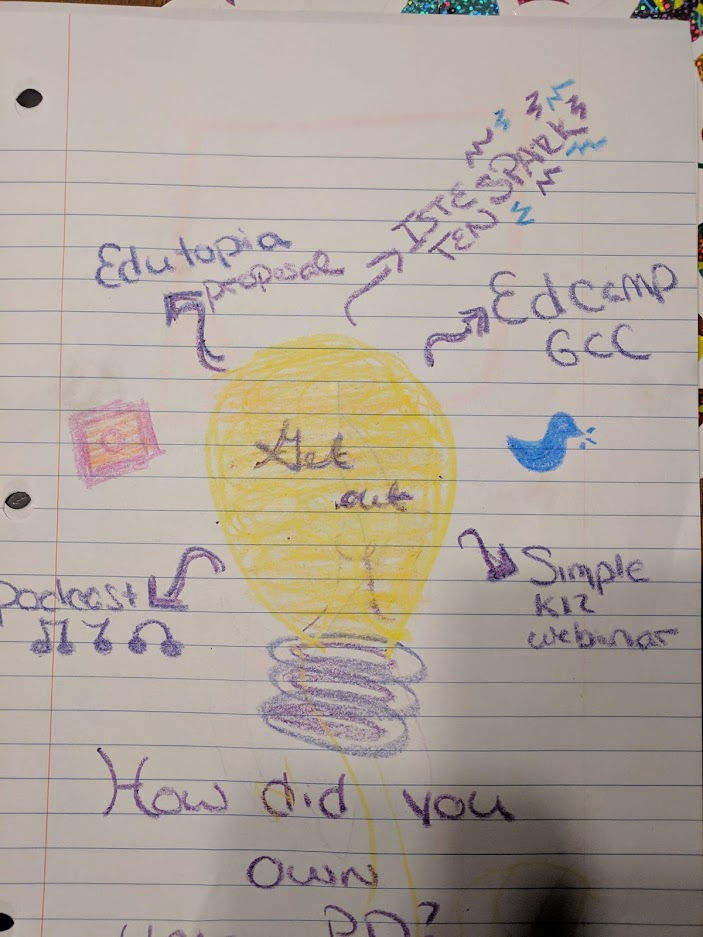 ISTE
TEN SPARK
Edutopia
proposal
EdCamp
GCC
Get
out
Podcast
Simple
K12
webinar
How did you
own
PD?